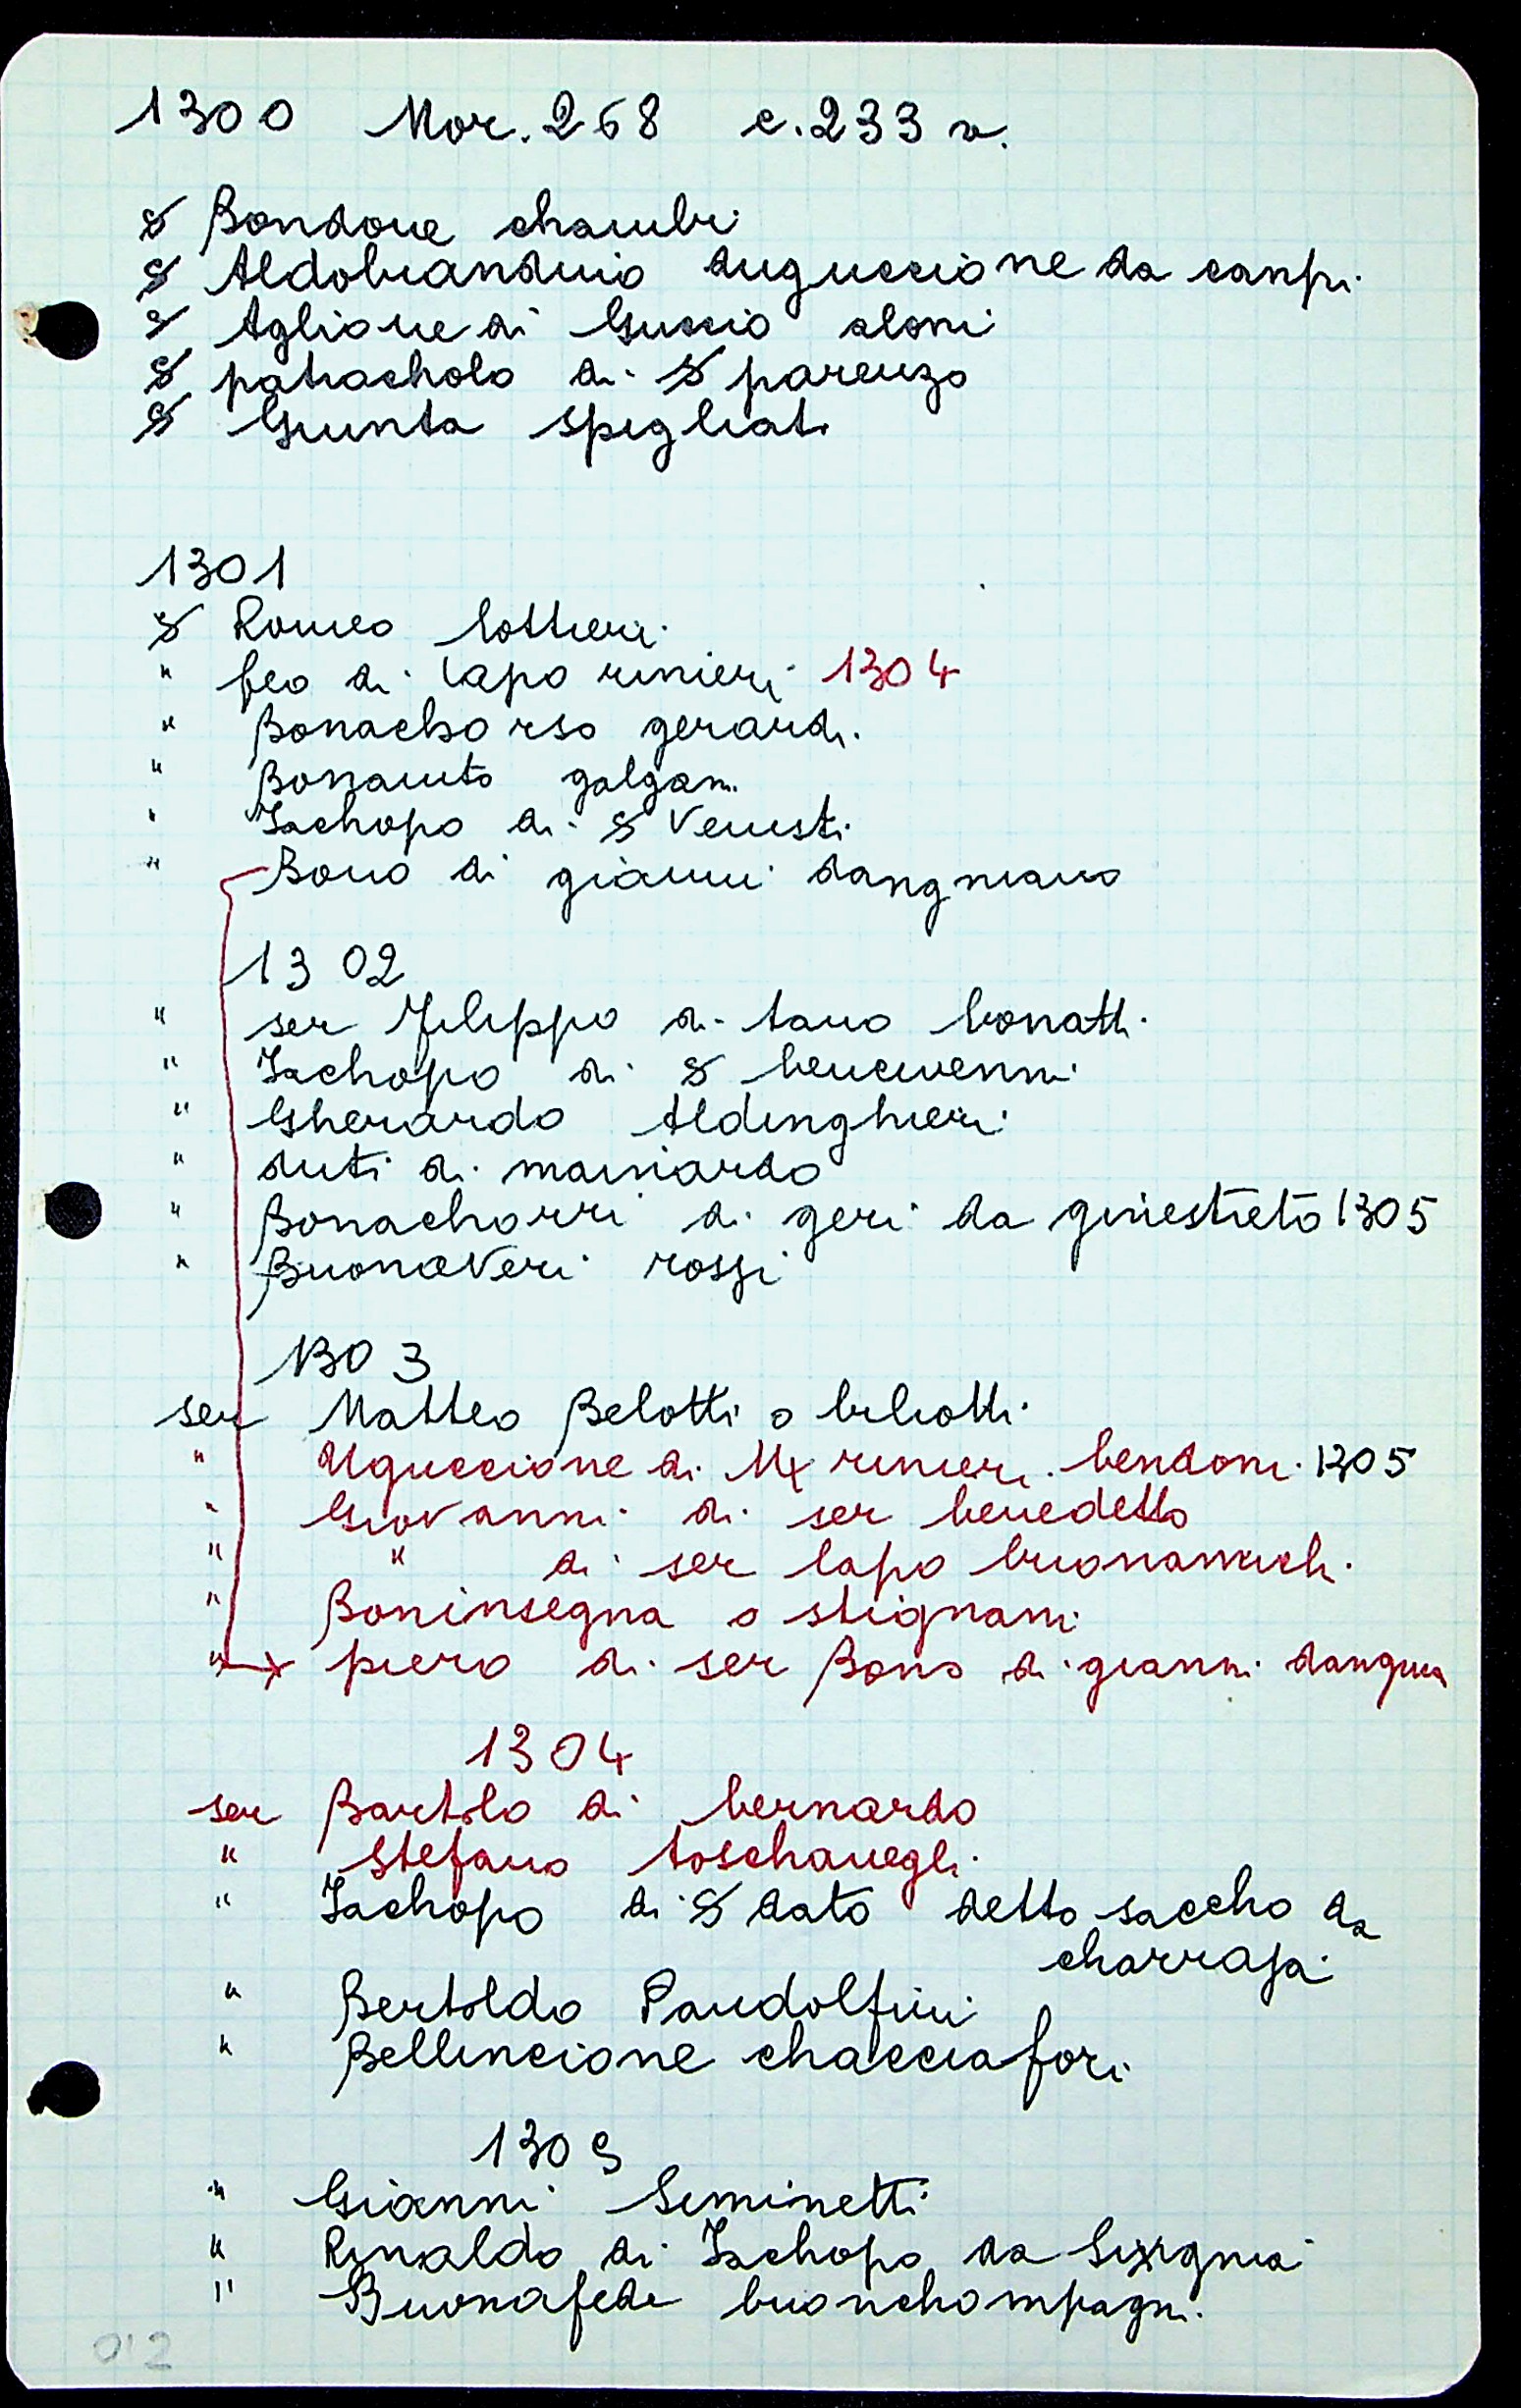 1300 Mor. 268 c. 233 v.
S Bondone chambi
S Aldobrandino duguccione da canpi
S Aglione di Guccio aloni
S patracholo di S parenzo
S Giunta spigliati
1301
S Romeo lottieri
" feo di lapo rinieri 1304
" Bonachorso gerardi
" Bonaiuto galgani
" Iachopo di S Venisti
" Bono di gianni dangniano
1302
" ser Filippo di tano bonatti
" Iachopo di S bencivenni
" Gherardo Aldinghieri
" duti di mainardo
" Bonachorri di geri da ginestreto 1305
" Buonaveri rossi
1303
ser Matteo Belotti o biliotti
" Uguccione di Mx rinieri bendoni 1305
" Giovanni di ser benedetto
" " di ser lapo buonamichi
" Boninsegna o strignani
" piero di ser Bono di gianni dangnia
1304
ser Bartolo di bernardo
" Stefano toschanegli
" Iachopo di S dato detto saccho da
charraia
" Bertoldo Pandolfini
" Bellincione chacciafori
1305
" Gianni Siminetti
" Rinaldo di Iachopo da Signia
" Buonafede buonchompagni
012